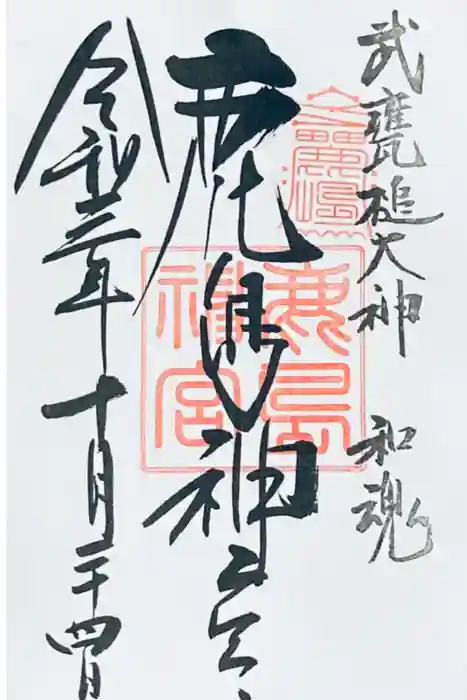 武甕槌大神 和魂
鹿島神宮
令和三年十月二十四日
鹿島神宮